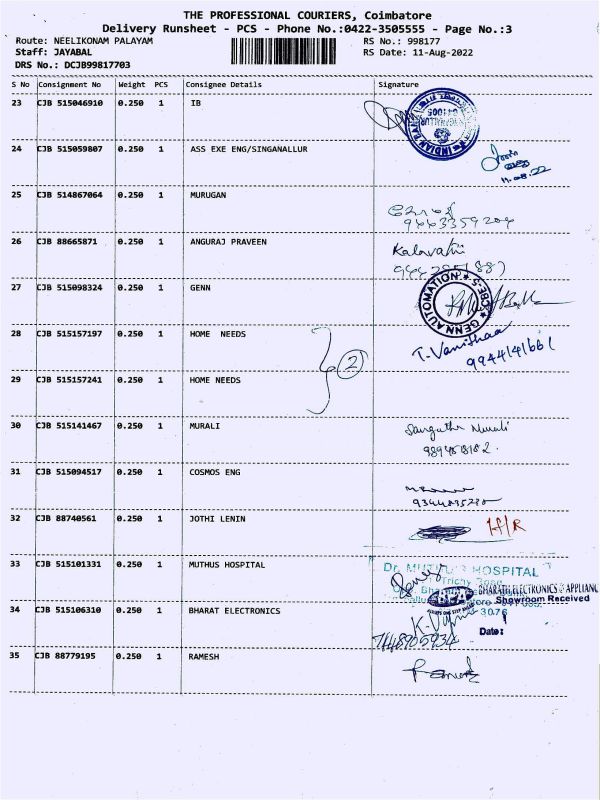 THE PROFESSIONAL COURIERS, Coimbatore
Delivery Runsheet - PCS - Phone No.:0422-3505555 - Page No.:3
Route: NEELIKONAM PALAYAM RS No.: 998177
Staff: JAYABAL RS Date: 11-Aug-2022
DRS No.: DCJB99817703
S No Consignment No Weight PCS Consignee Details Signature
23 CJB 515046910 0.250 1 IB
INDIAN BANK 641005
24 CJB 515059807 0.250 1 ASS EXE ENG/SINGANALLUR
11.08.22
25 CJB 514867064 0.250 1 MURUGAN
9443359204
26 CJB 88665871 0.250 1 ANGURAJ PRAVEEN Kalavathi
27 CJB 515098324 0.250 1 GENN
GENN AUTOMATION CBE-5
28 CJB 515157197 0.250 1 HOME NEEDS
T. Vanithaa
9944141661
2
29 CJB 515157241 0.250 1 HOME NEEDS
30 CJB 515141467 0.250 1 MURALI Sangatha Murali
31 CJB 515094517 0.250 1 COSMOS ENG
32 CJB 88740561 0.250 1 JOTHI LENIN
33 CJB 515101331 0.250 1 MUTHUS HOSPITAL
HOSPITAL
Trichy Road
BHARATH ELECTRONICS & APPLIANC
Showroom Received
34 CJB 515106310 0.250 1 BHARAT ELECTRONICS
BEA
3076
Date:
35 CJB 88779195 0.250 1 RAMESH